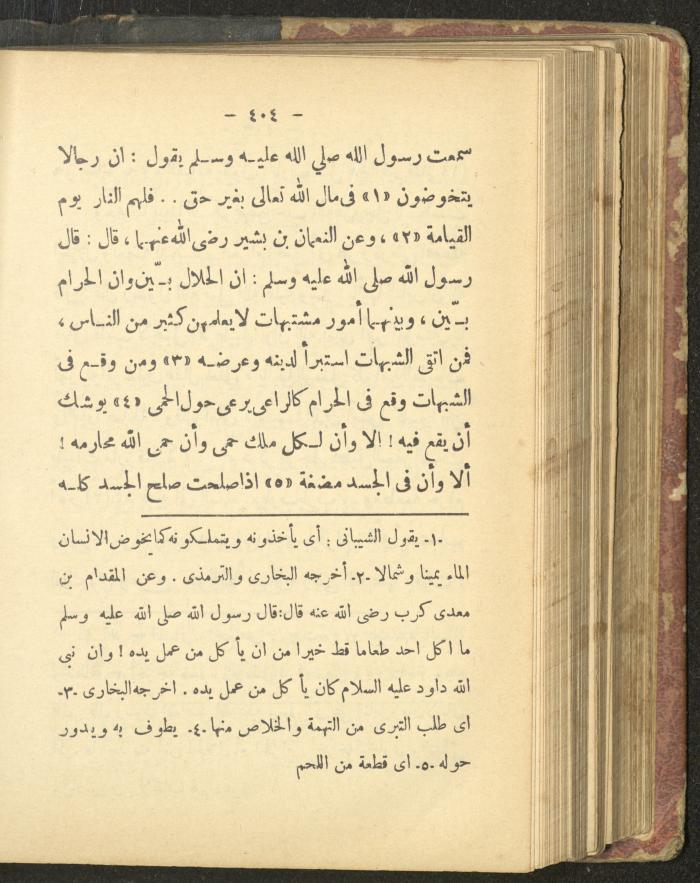 - ٤٠٤ -
سمعت رسول الله صلي الله عليـه وسـلم يقول : ان رجالا
يتخوضون «١» فى مال الله تعالى بغير حق . . فلهم النار يوم
القيامة «٢» ، وعن النعمان بن بشير رضى الله عنهما ، قال : قال
رسول الله صلى الله عليه وسلم : ان الحلال بـيّن وان الحرام
بـيّن ، وبينهـما أمور مشتبهات لا يعلمهن كثير من النـاس ،
فمن اتقى الشبهات استبرأ لدينه وعرضـه «٣» ومن وقـع فى
الشبهات وقع فى الحرام كالراعى يرعى حول الحمى «٤» يوشك
أن يقع فيه ! الا وأن لـكل ملك حمى وأن حمى الله محارمه !
ألا وأن فى الجسد مضغة «٥» اذا صلحت صلح الجسد كلـه
-١- يقول الشيبانى : أى يأخذونه ويتملـكونه كما يخوض الانسان
الماء يمينا وشمالا -٢- أخرجه البخارى والترمذى . وعن المقدام بن
معدى كرب رضى الله عنه قال : قال رسول الله صلى الله عليه وسلم
ما اكل احد طعاما قط خيرا من ان يأ كل من عمل يده ! وان نبي
الله داود عليه السلام كان يأ كل من عمل يده . اخرجه البخارى -٣-
اى طلب التبرى من التهمة والخلاص منها -٤- يطوف به ويدور
حوله -٥- اى قطعة من اللحم